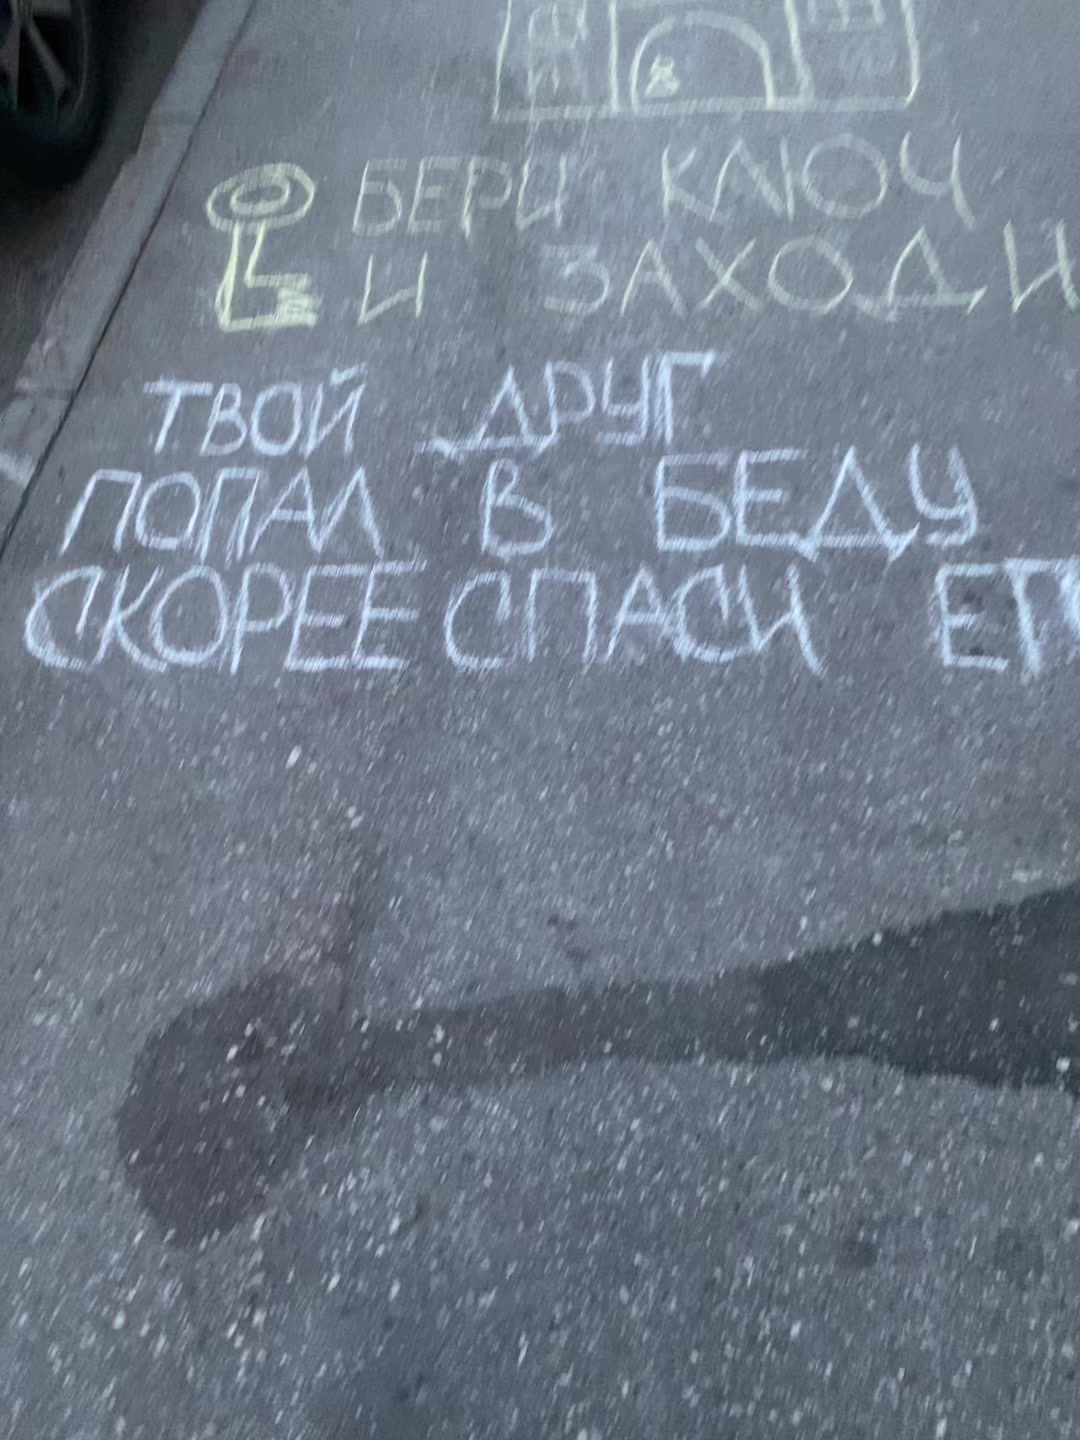 БЕРИ КЛЮЧ
И ЗАХОДИ
ТВОЙ ДРУГ
ПОПАЛ В БЕДУ
СКОРЕЕ СПАСИ